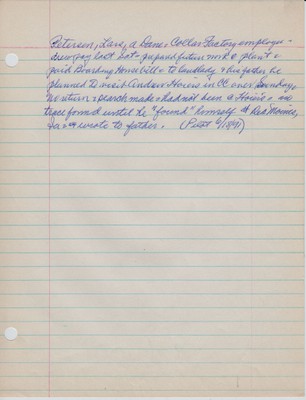 Peterson, Lars, a Dane - Collar Factory employe -
drew pay last Sat - prepared future work @ plant &
paid Boarding House bill - to landlady & his father he
planned to visit Andrew Howie in CC over Sunday,
No return & search made - had not been @ Howie - no
trace found until he "found" himself at Des Moines,
Ia - & wrote to father. (Petst 6/1891)